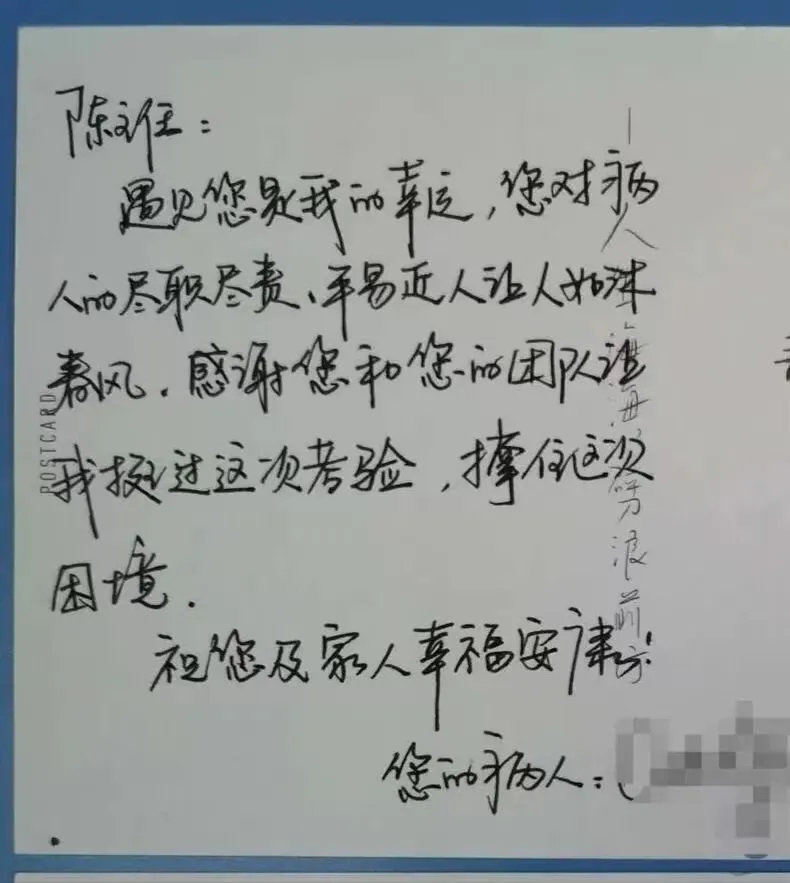 陈主任：
遇见您是我的幸运，您对病
人的尽职尽责、平易近人让人如沐
春风．感谢您和您的团队让
我挺过这次考验，撑住这次
困境．
祝您及家人幸福安康！
您的病人：
POSTCARD